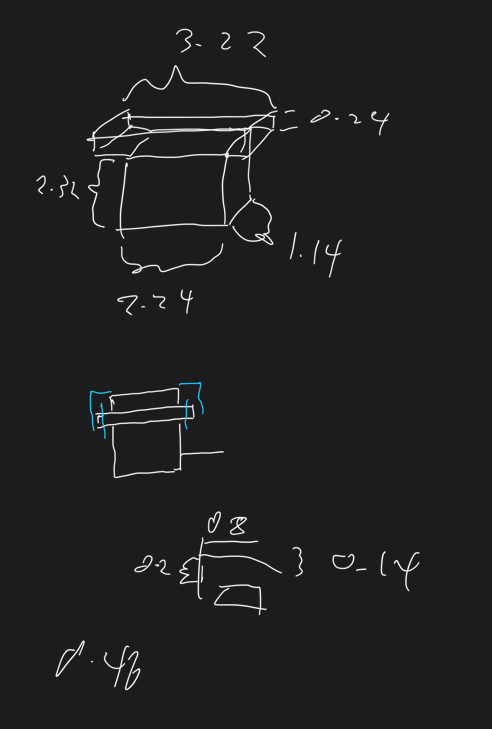 3.22
0.24
2.32
1.14
2.24
0.8
0.2
0.14
0.46